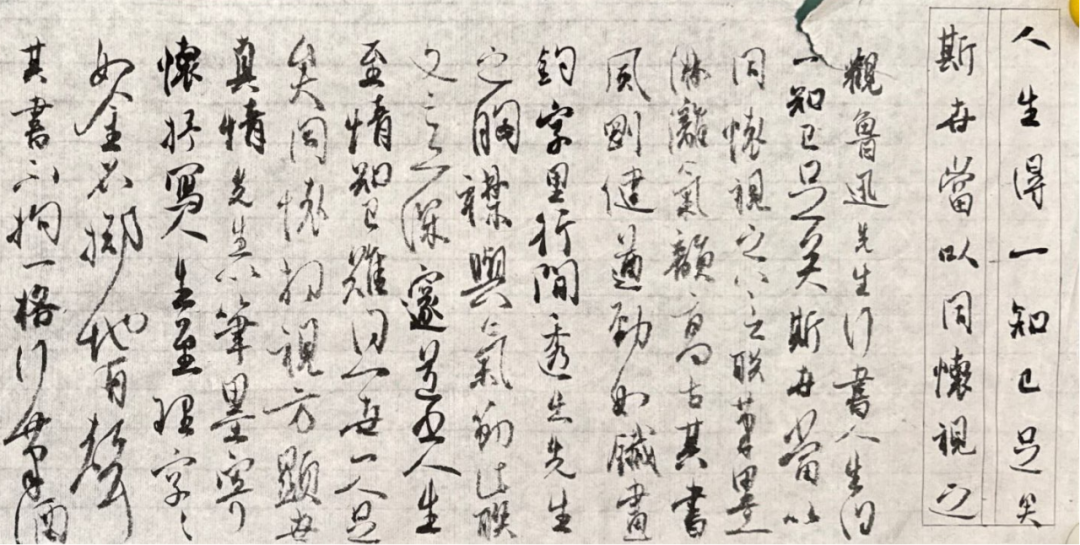 人生得一知己足矣
斯世當以同懷視之
觀魯迅先生行書人生得
一知己足矣斯世當以
同懷視之八言聯筆墨
淋灕氣韻高古其書
風剛健遒勁如鐵畫
鈎字里行間透出先生
之胸襟與氣節此聯
文深邃道人生
至情知己難世一人足
矣同懷相視方顯世
真情先生以筆墨寄
懷抒寫人生至理字字
如金石擲地有聲
其書不拘一格行筆洒